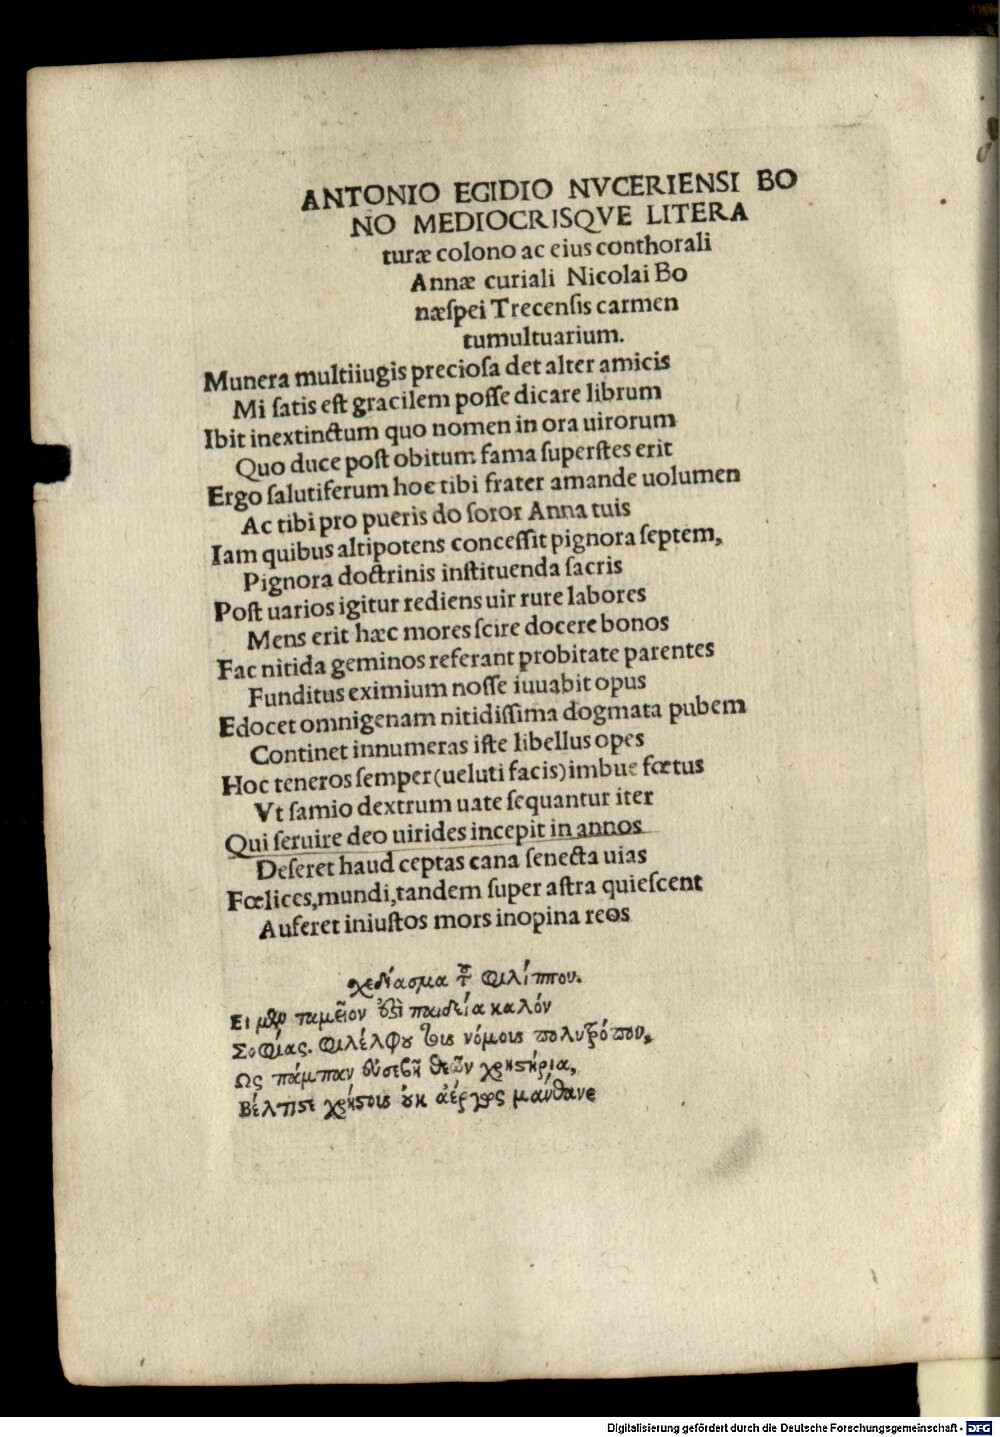 ANTONIO EGIDIO NVCERIENSI BO
NO MEDIOCRISQVE LITERA
turæ colono ac eius conthorali
Annæ curiali Nicolai Bo
næſpei Trecenſis carmen
tumultuarium.
Munera multiiugis precioſa det alter amicis
Mi ſatis eſt gracilem poſſe dicare librum
Ibit inextinctum quo nomen in ora uirorum
Quo duce poſt obitum fama ſuperſtes erit
Ergo ſalutiferum hoc tibi frater amande uolumen
Ac tibi pro pueris do ſoror Anna tuis
Iam quibus altipotens conceſſit pignora ſeptem,
Pignora doctrinis inſtituenda ſacris
Poſt uarios igitur rediens uir rure labores
Mens erit hæc mores ſcire docere bonos
Fac nitida geminos referant probitate parentes
Funditus eximium noſſe iuuabit opus
Edocet omnigenam nitidiſſima dogmata pubem
Continet innumeras iſte libellus opes
Hoc teneros ſemper (ueluti facis) imbue fœtus
Vt ſamio dextrum uate ſequantur iter
Qui ſeruire deo uirides incepit in annos
Deſeret haud ceptas cana ſenecta uias
Fœlices, mundi, tandem ſuper aſtra quieſcent
Auferet iniuſtos mors inopina reos
χεδίασμα Φιλίππου.
Ει μὲν ταμεῖον ἐστὶ παιδεία καλόν
Σοφίας. Φιλέλφου τοῖς νόμοις πολυτρόπου,
Ως πάμπαν εὐσεβῆ θεῶν χρηστήρια,
Βέλτιστε χρήστοις οὐκ ἀέργως μάνθανε
Digitalisierung gefördert durch die Deutsche Forschungsgemeinschaft - DFG